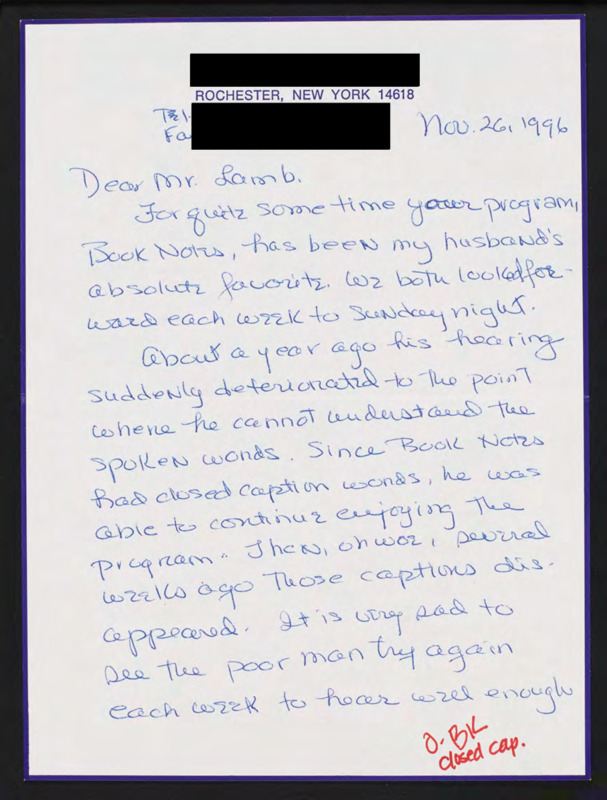 ROCHESTER, NEW YORK 14618
Tel-
Fa
Nov. 26, 1996
Dear Mr. Lamb.
For quite some time your program,
Book Notes, has been my husband's
absolute favorite. We both looked for-
ward each week to Sunday night.
About a year ago his hearing
suddenly deteriorated to the point
where he cannot understand the
spoken words. Since Book Notes
had closed caption words, he was
able to continue enjoying the
program. Then, oh woe, several
weeks ago those captions dis-
appeared. It is very sad to
see the poor man try again
each week to hear well enough
O. BK
closed cap.